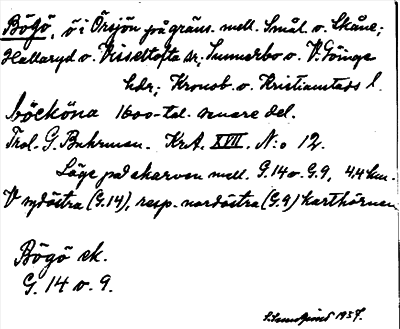 Bögö, ö i Örsjön på gräns. mell. Smål. o. Skåne;
Hallaryd o. Visseltofta sr; Sunnerbo o. V. Göinge
hdr; Kronob. o. Kristianstads l.
böeköna 1600-tal. senare del.
Trol. G. Buhrman. KrA. XVII. N:o 12.
Läge på skarven mell. G. 14 o. G. 9, 4,4 km.
V sydöstra (G. 14), resp. nordöstra (G. 9) karthörnen
Bögö ek.
G. 14 o. 9.
1937.